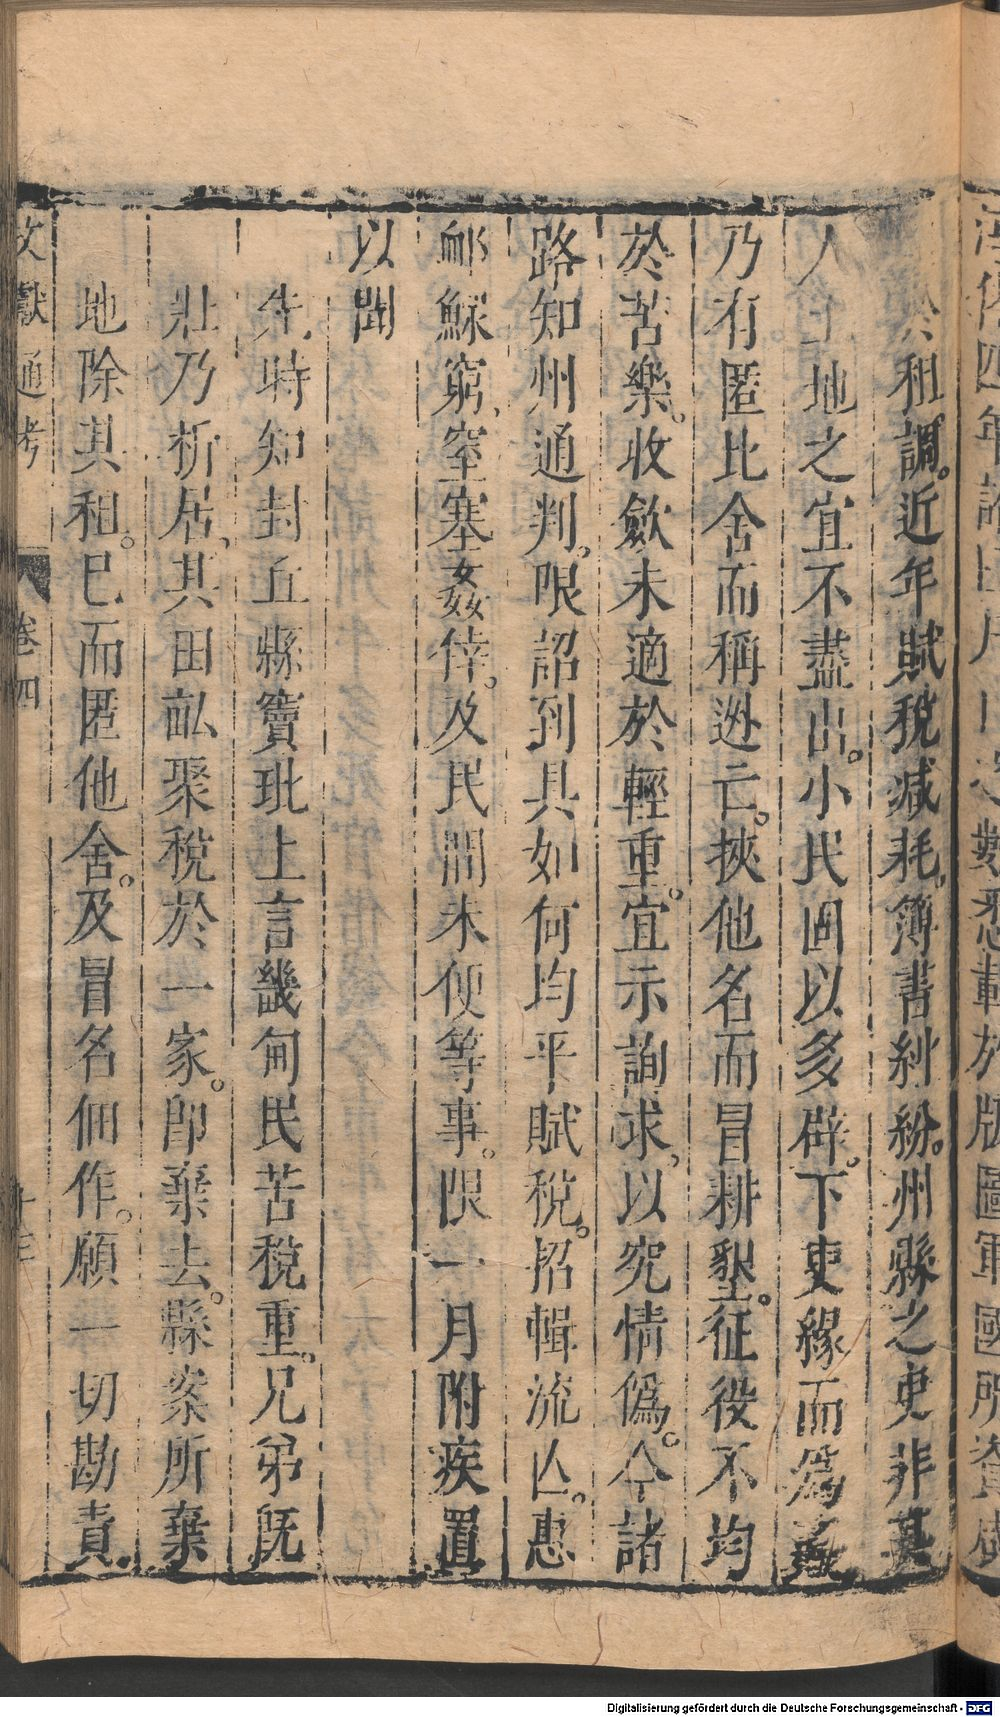 於租調。近年賦稅減耗。簿書糾紛。州縣之吏非其
人。土地之宜不盡出。小民因以多辟。下吏緣而爲姦
乃有匿比舍而稱逃亡。挾他名而冒耕墾。征役不均
於苦樂。收歛未適於輕重。宜示詢求、以究情僞。令諸
路知州通判、限詔到具如何均平賦稅。招輯流亾。惠
䘏鰥窮、窒塞姦倖。及民間未便等事。限一月附疾置
以聞
先時知封丘縣竇玭上言畿甸民苦稅重。兄弟旣
壯乃析居、其田畝聚稅於一家。即棄去。縣案所棄
地除其租。已而匿他舍。及冒名佃作。願一切勘責。
文獻通考 卷四 十三
Digitalisierung gefördert durch die Deutsche Forschungsgemeinschaft - DFG